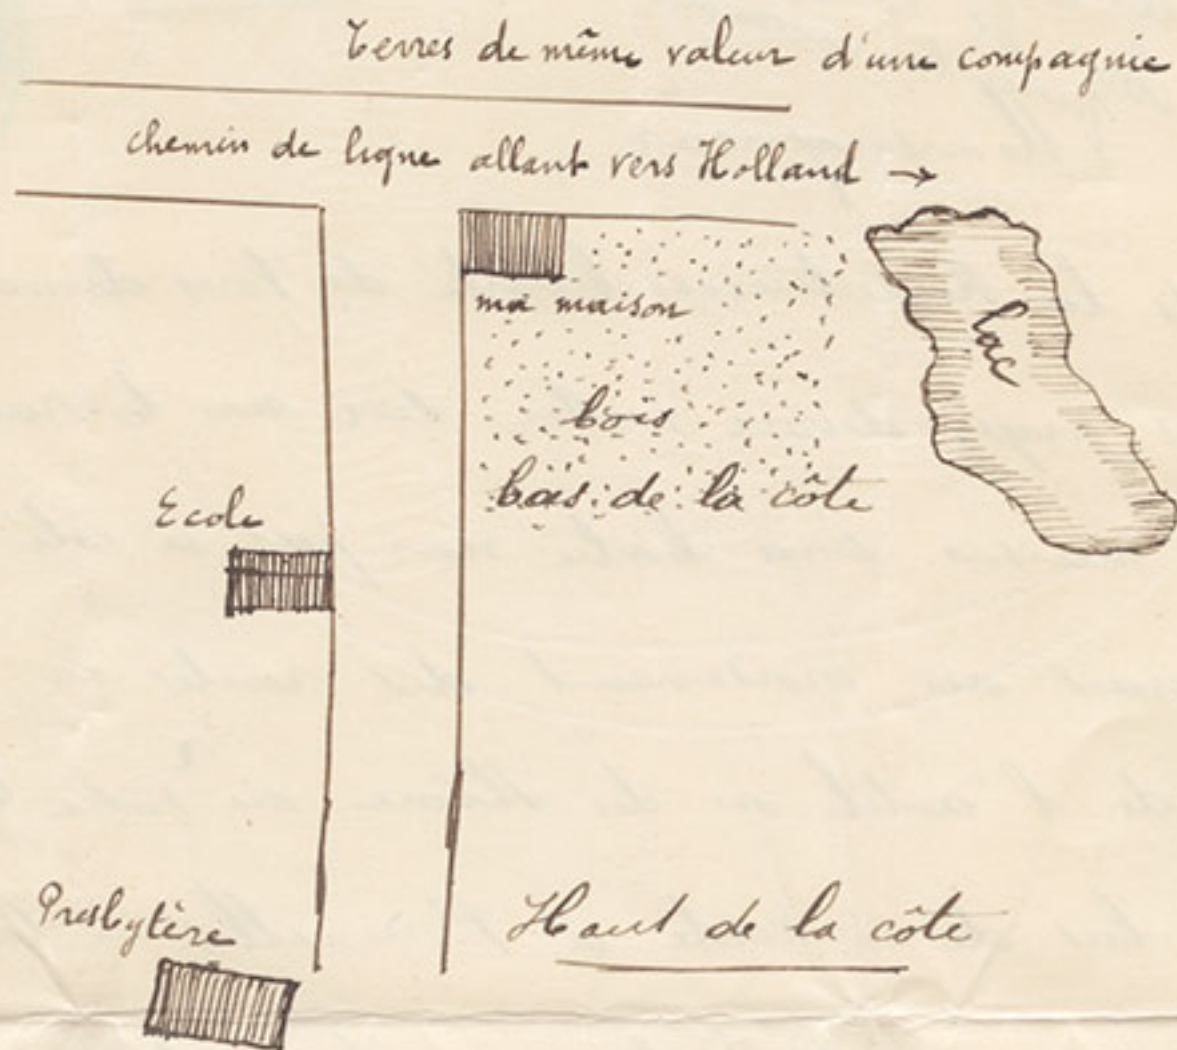 Terres de même valeur d'une compagnie
chemin de ligne allant vers Holland →
ma maison
lac
bois
bas de la côte
Ecole
Presbytère
Haut de la côte